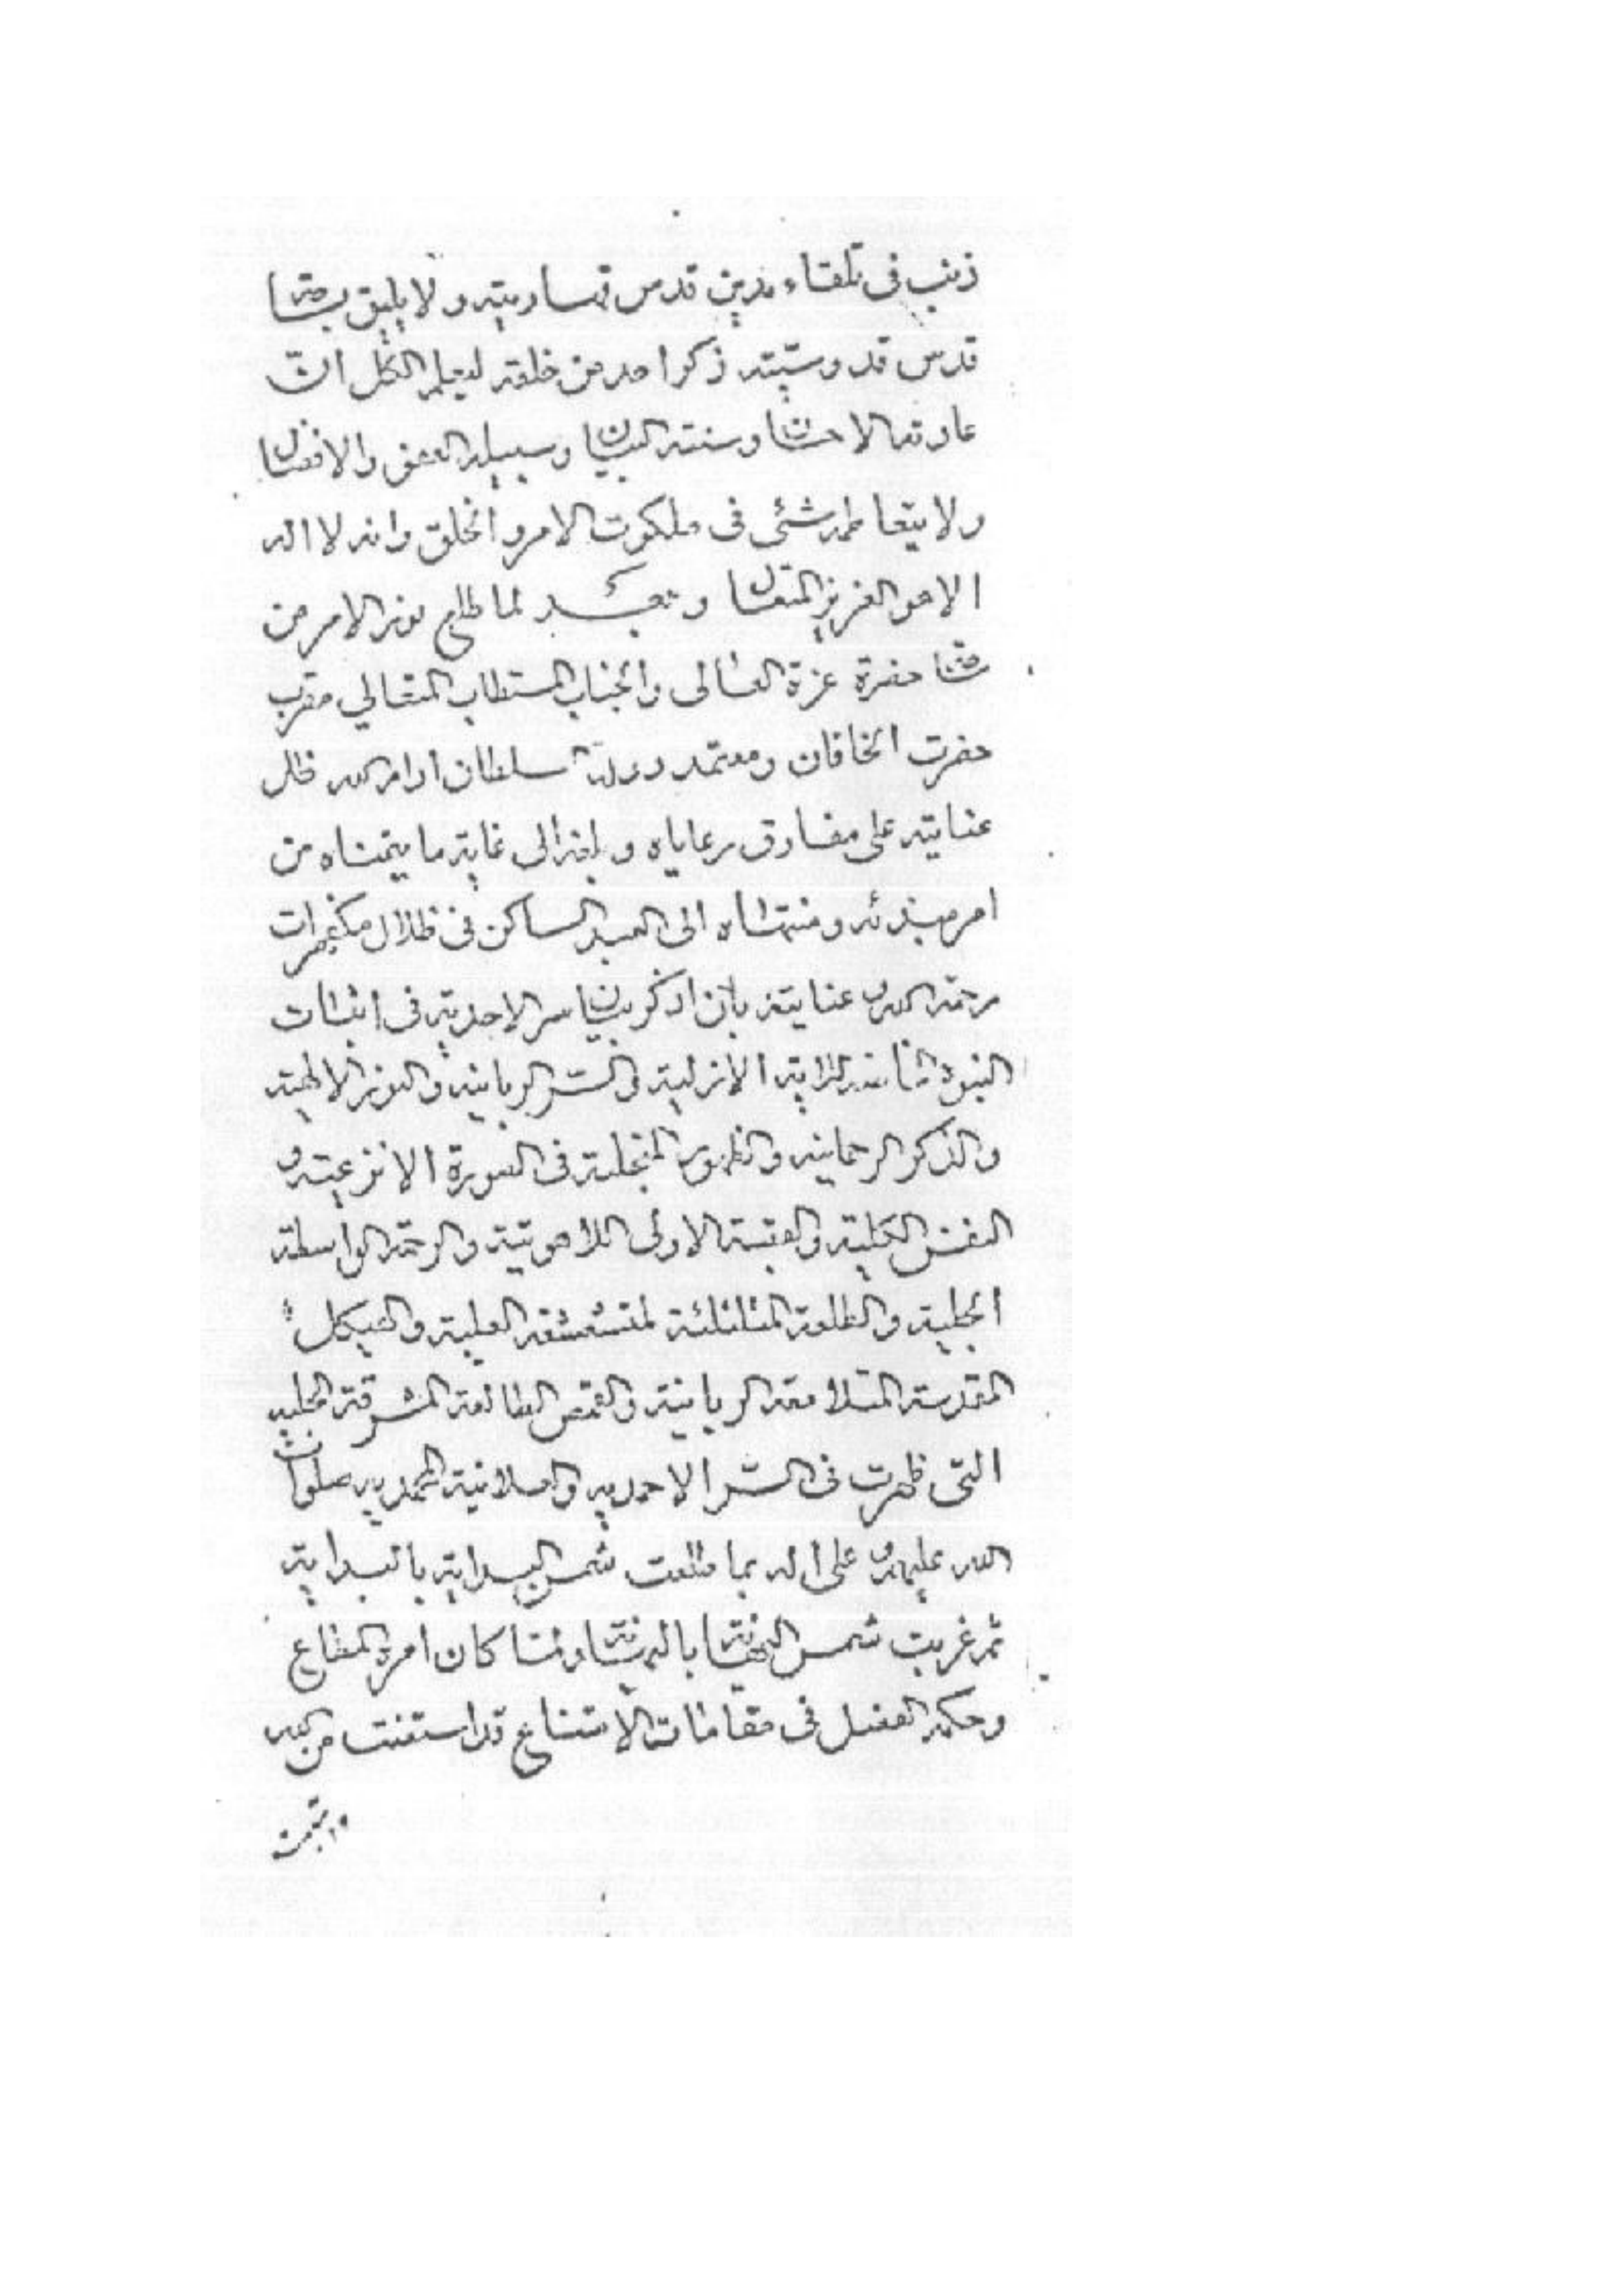 ذنب فى تلقاء مدين قدس قهاريته ولا يليق بساحة
قدس قدوسيته ذكر احد من خلقه ليعلم الكل ان
عادته الاحسان وسنته البيان وسبيله العفو والافضال
ولا يتعاظمه شئ فى ملكوت الامر والخلق وانه لا اله
الا هو العزيز المتعال وبعد لما طلع نور الامر من
ساحة حضرة عزة العالى والجناب المستطاب المتعالي مقرب
حضرت الخاقان ومعتمد دولة سلطان ادام الله ظلال
عنايته على مفارق رعاياه وبلغه الى غاية ما يتمناه من
امر مبدئه ومنتهاه الى العبد الساكن فى ظلال مكفهرات
رحمة الله و عنايته بان اذكر بيان سر الاحدية فى اثبات
النبوة الخاصة للاية الازلية والسر الربانية والنور الالهية
والذكر الرحمانية والظهور المتجلية فى الصورة الانزعية و
النفس الكلية والقبسة الاولى اللاهوتية والرحمة الواسطة
الجلية والطلعة المتلئلئة المتشعشعة العلية والهيكل
المقدسة المتلامعة الربانية والقمص الطالعة المشرقة الجلية
التى ظهرت فى السر الاحمدية والعلانية المحمدية صلوات
الله عليه و على اله بما طلعت شمس البداية بالبداية
ثم غربت شمس النهاية بالنهاية ولما كان امره المطاع
وحكم الفضل فى مقامات الامتناع قد استعنت من الله